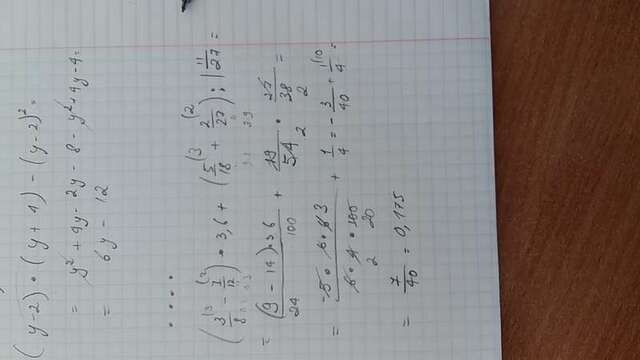 (y-2)•(y+4)-(y-2)²=
= y²+4y-2y-8-y²+4y-4=
= 6y-12
• • • •
(3/8 - 7/12)•3,6+(5/18 + 2/27):1 11/27=
= (9-14)•36 / 24 100 + 19/54 2 • 27/38 2 =
= -5•6•6 3 / 6•4•100 2 20 + 1/4 = -3/40 + 1/4 =
= 7/40 = 0,175